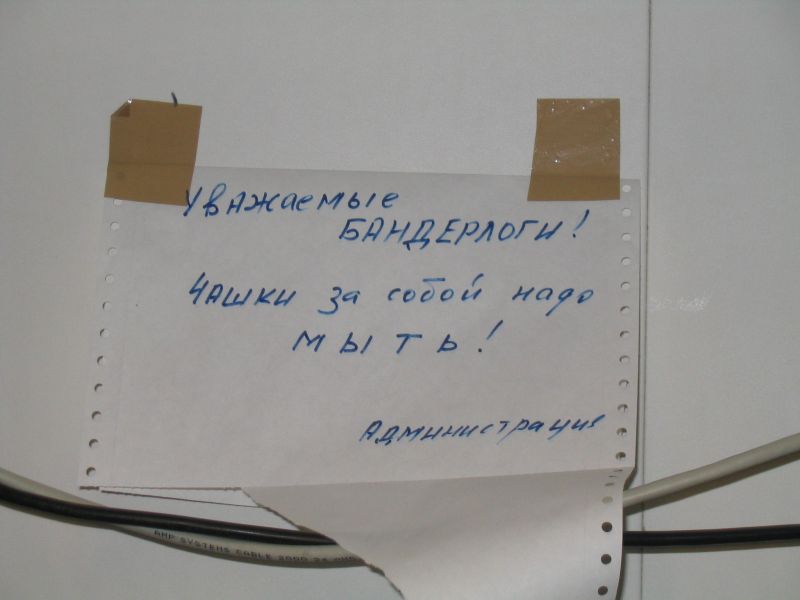 Уважаемые
БАНДЕРЛОГИ!
Чашки за собой надо
мыть!
Администрация
AMP SYSTEMS CABLE 2000 24 AWG